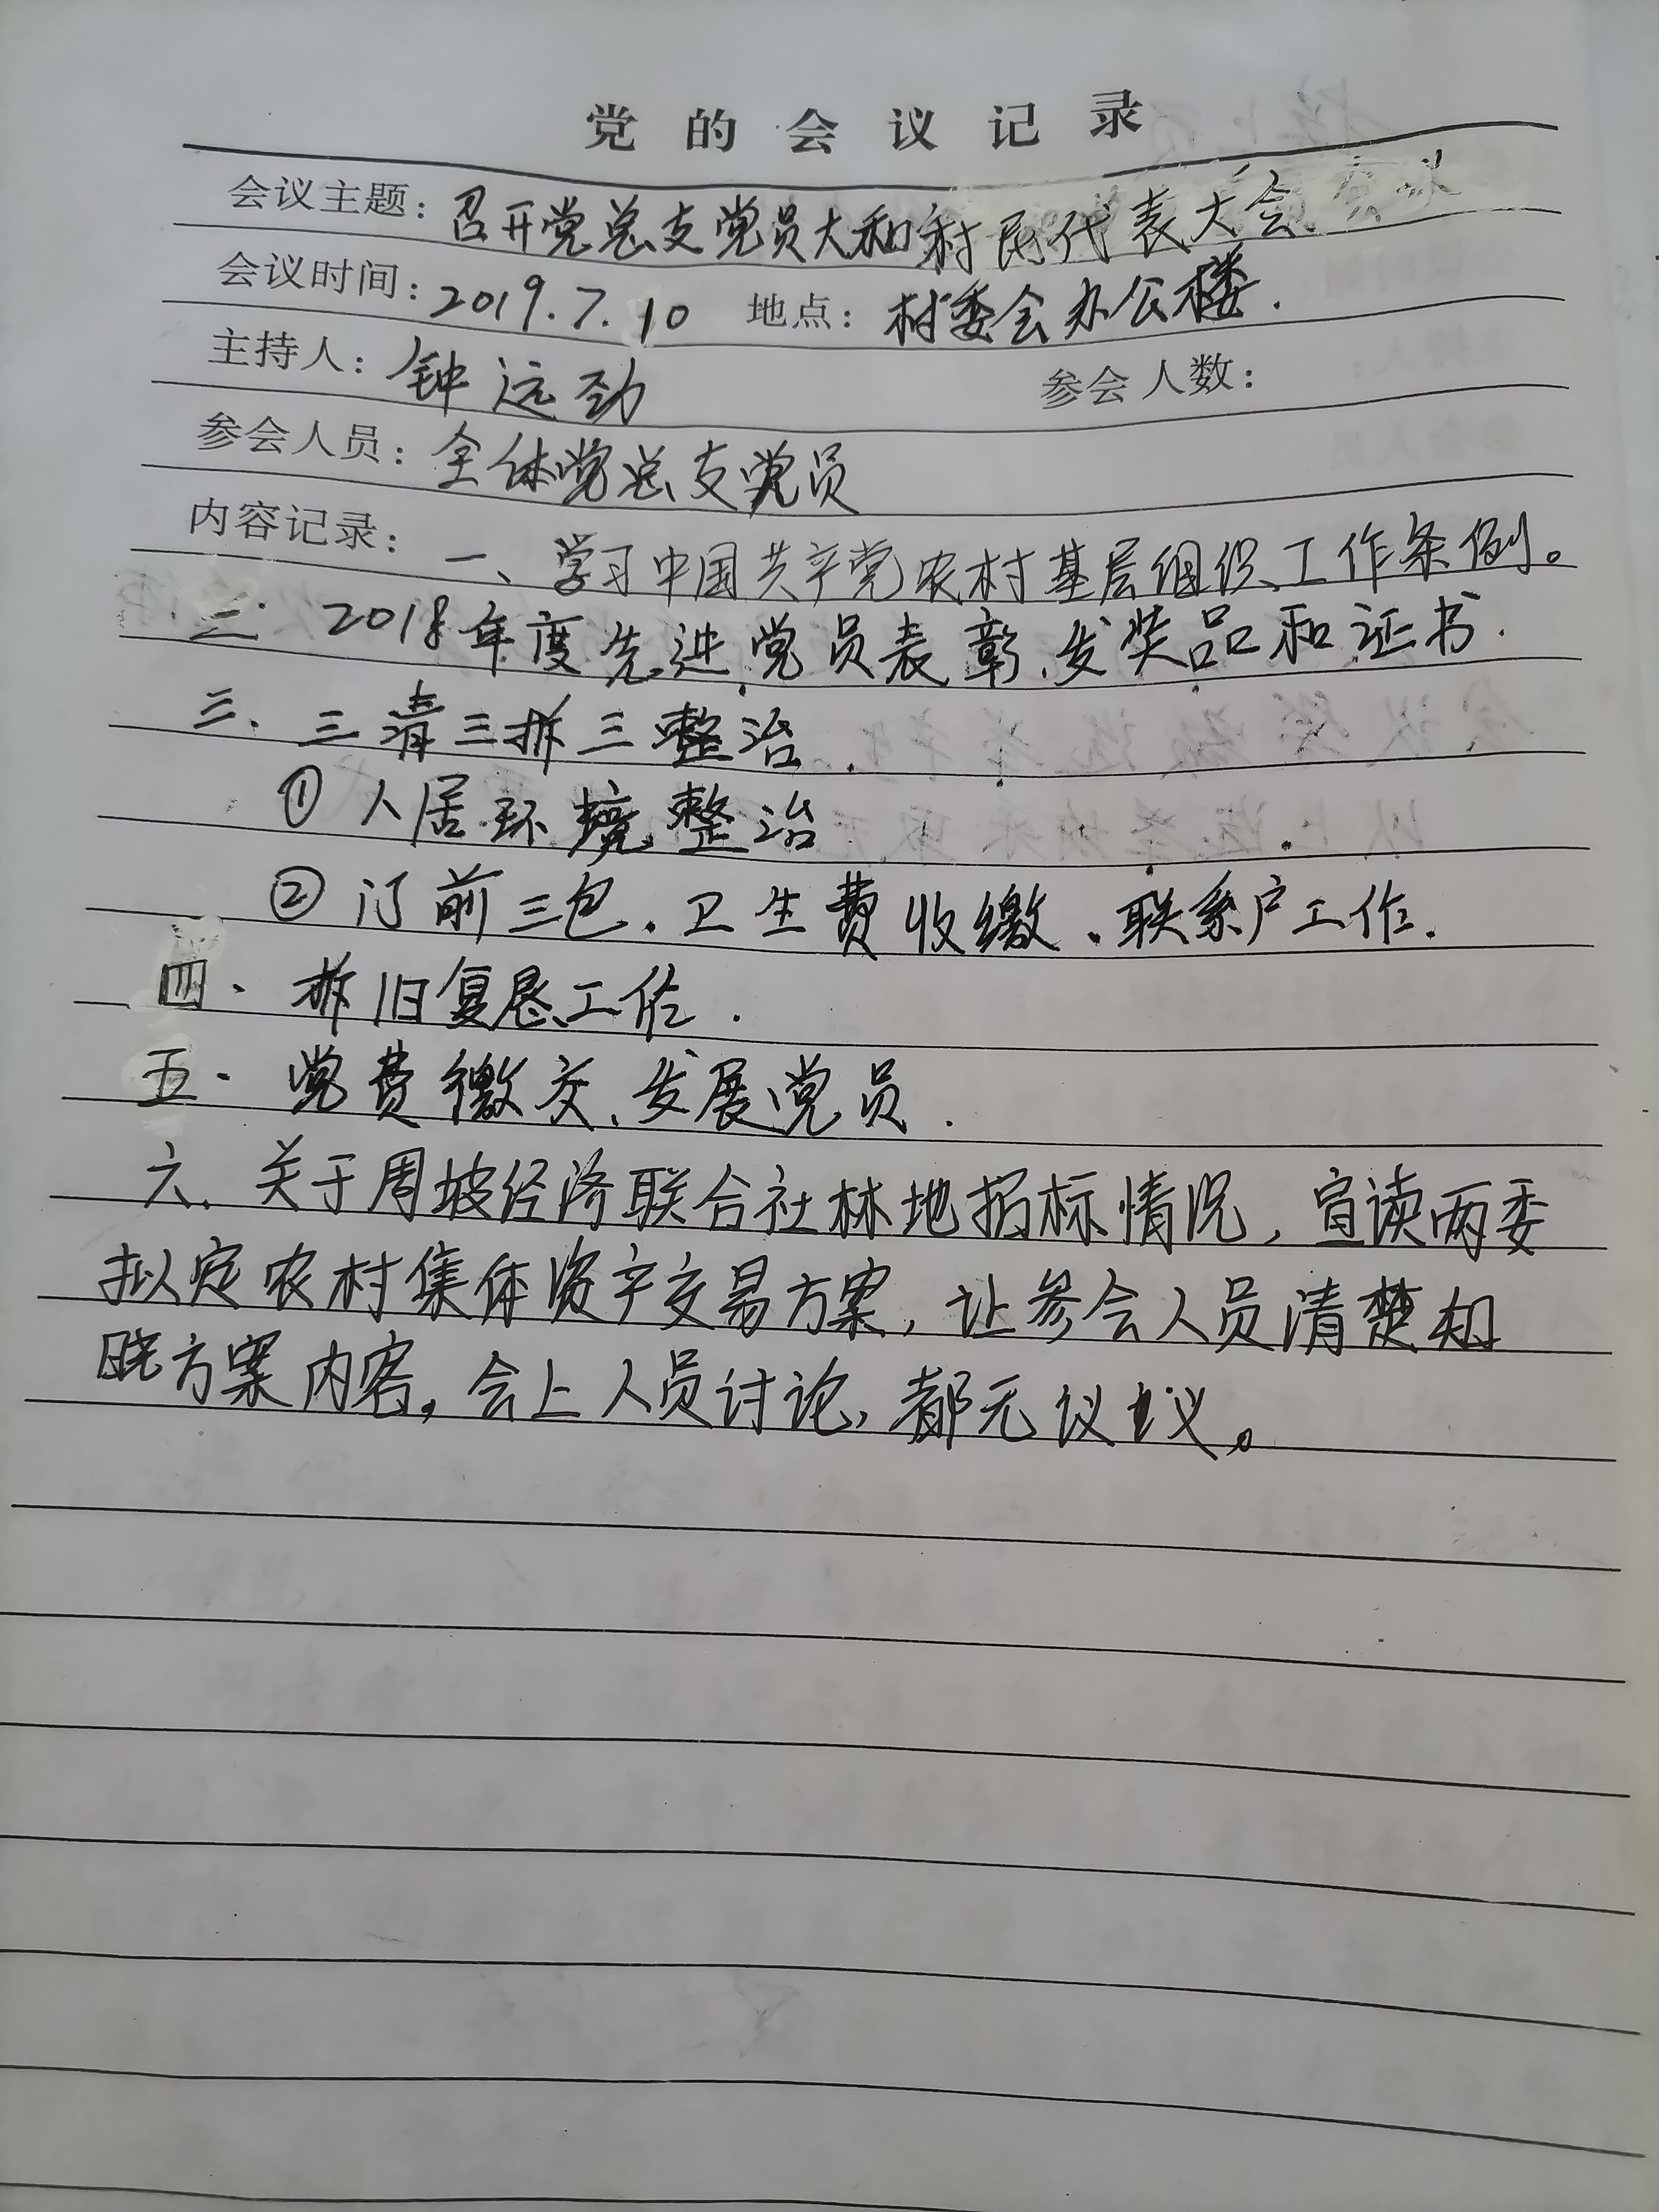 党的会议记录
会议主题：召开党总支党员大和村民代表大会
会议时间：2019.7.10 地点：村委会办公楼.
主持人：钟远劲 参会人数：
参会人员：全体党总支党员
内容记录：一、学习中国共产党农村基层组织工作条例。
二. 2018年度先进党员表彰、发奖品和证书.
三、三清三拆三整治.
①人居环境整治
②门前三包.卫生费收缴.联系户工作.
四、拆旧复垦工作.
五.党费缴交、发展党员.
六、关于周坡经济联合社林地招标情况，宣读两委
拟定农村集体资产交易方案，让参会人员清楚知
晓方案内容，会上人员讨论，都无议议。